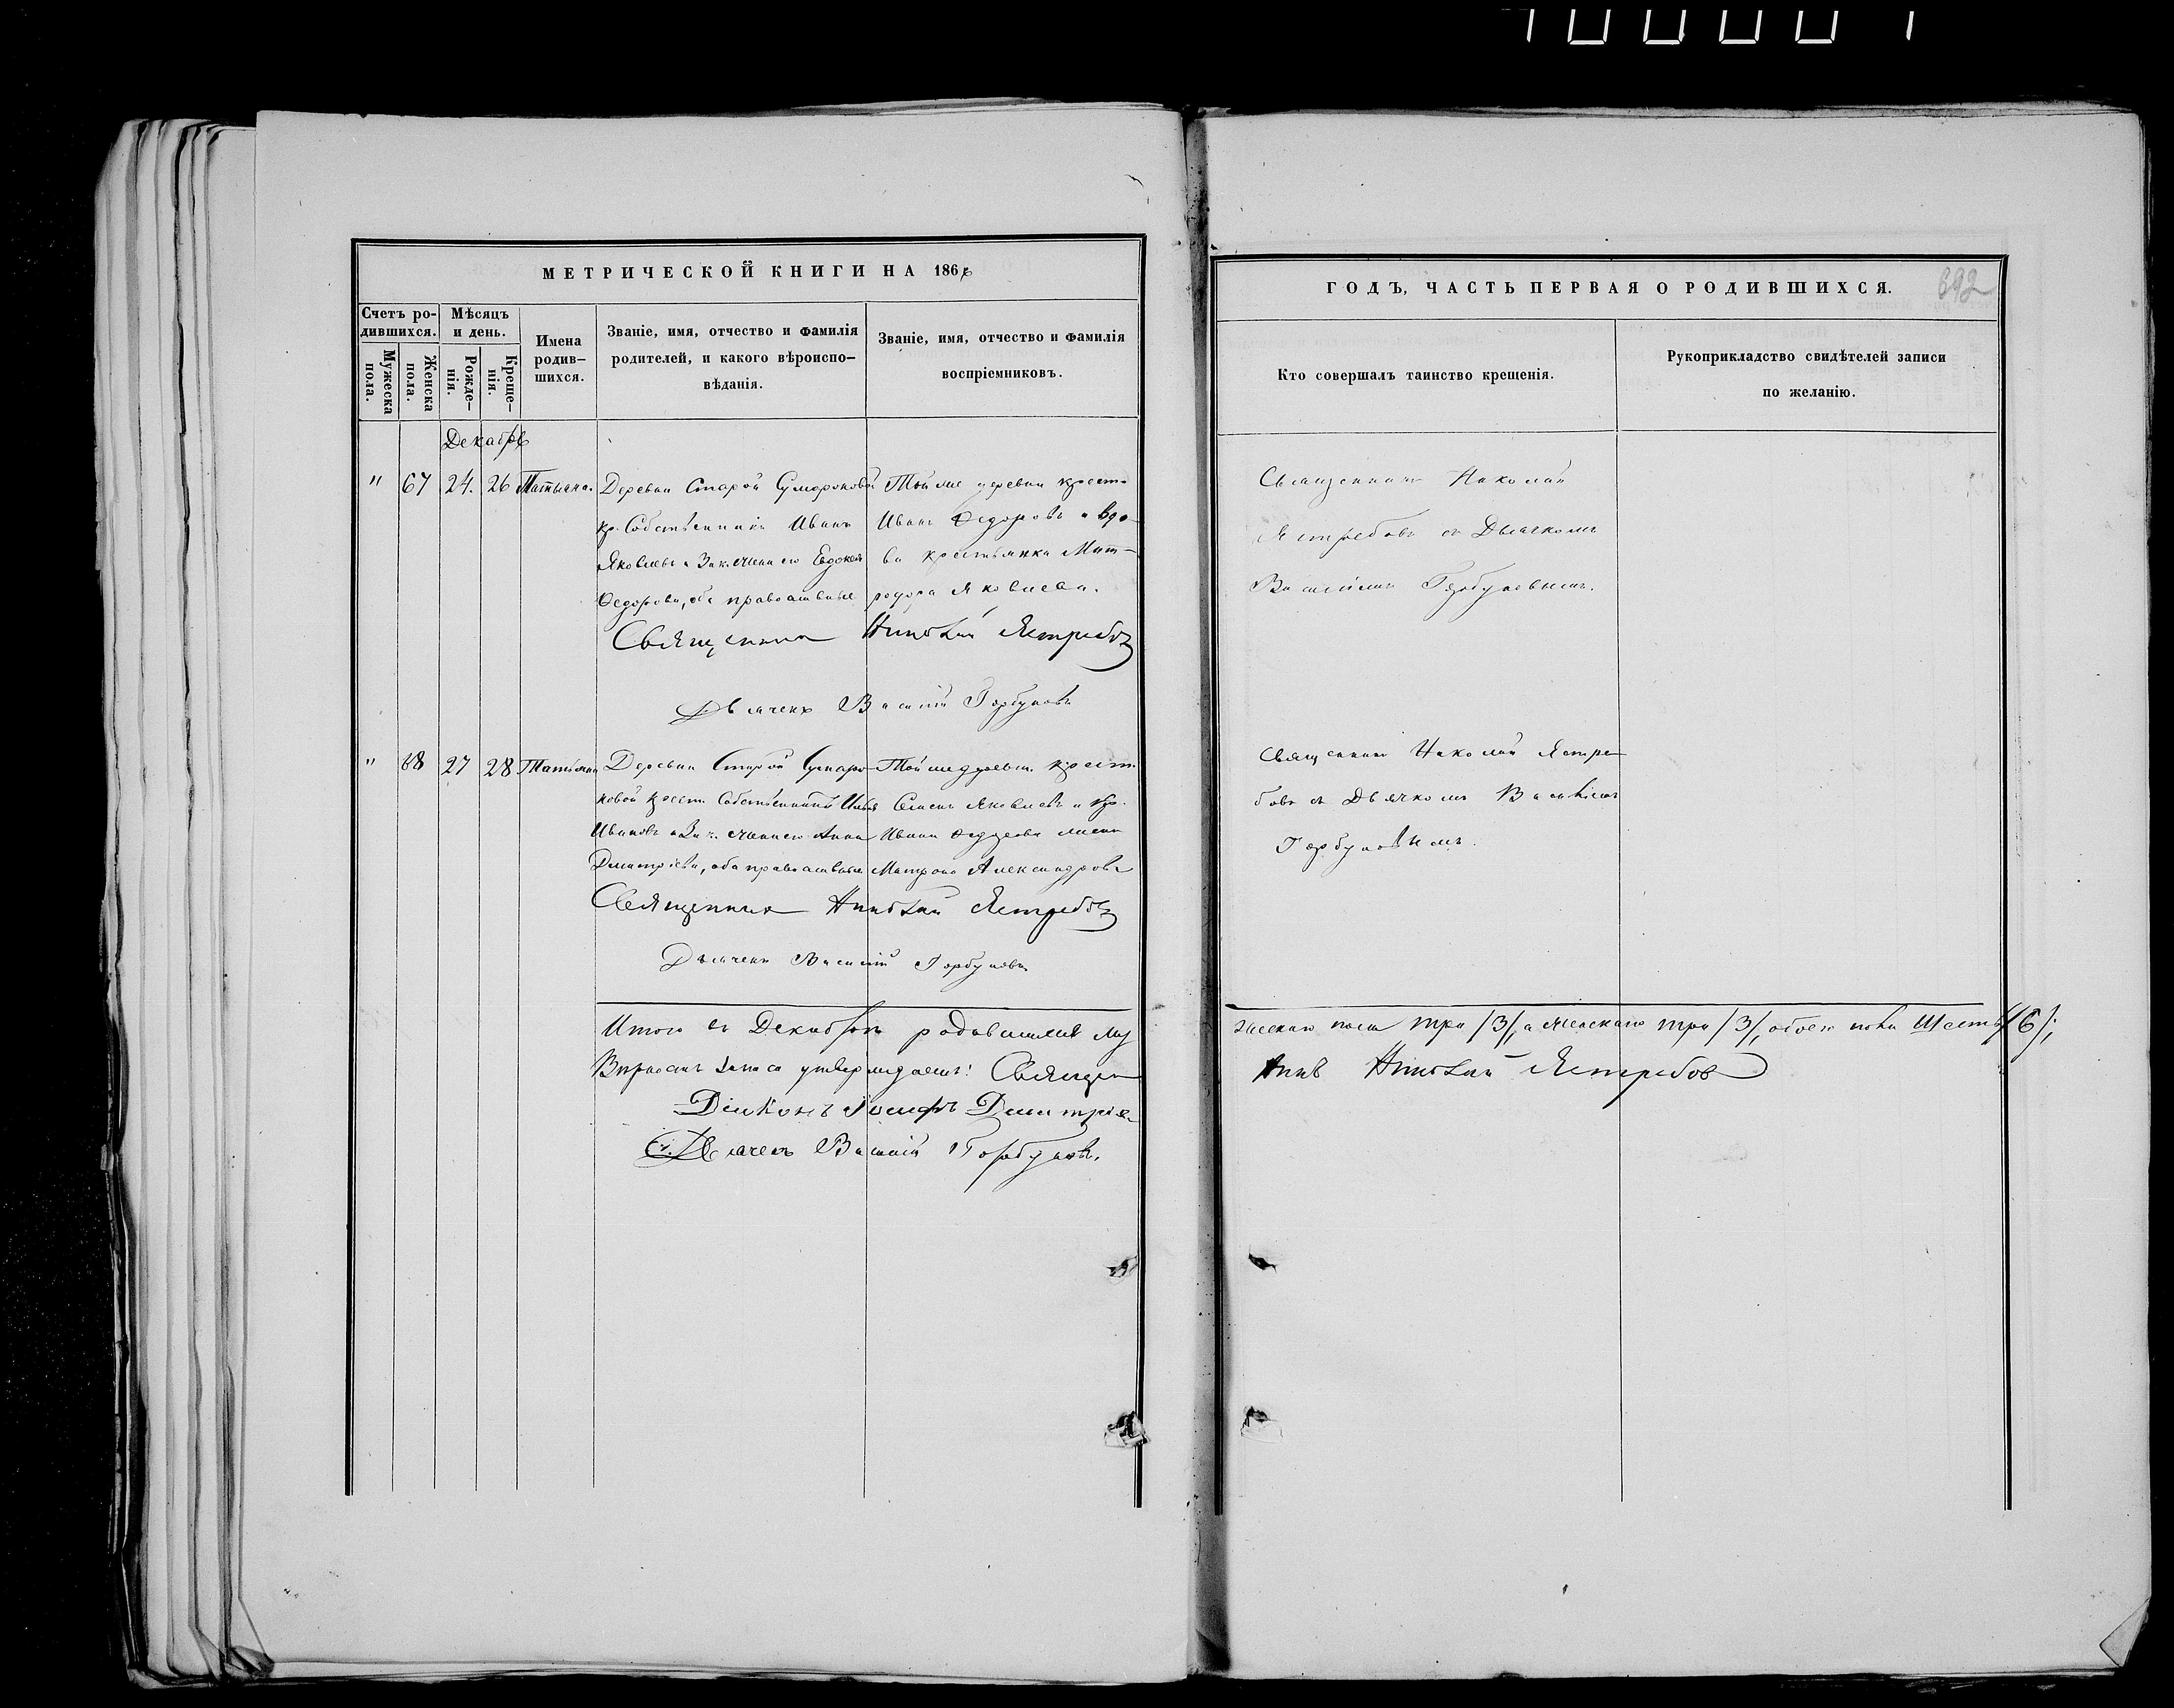 МЕТРИЧЕСКОЙ КНИГИ НА 186
Счетъ ро-
дившихся.
Мужеска
пола.
Женска
пола.
Мѣсяцъ
и день.
Рожде-
нія.
Креще-
нія.
Имена
родив-
шихся.
Званіе, имя, отчество и фамилія
родителей, и какого вѣроиспо-
вѣданія.
Званіе, имя, отчество и фамилія
воспріемниковъ.
Декабрь
" 67 24. 26 Татьяна.
Деревни Старой Сумароковой
кр. Собственникъ Иванъ
Яковлевъ и Зак. жена его Евдокія
Ѳедорова, оба православные
Той же деревни крест.
Иванъ Ѳедоровъ и вдо-
ва крестьянка Мат-
рода Яковлева.
Священникъ Николай Ястребовъ
Дьячекъ Василій Горбуновъ
" 68 27 28 Татьяна
Деревни Старой Сумаро-
ковой крест. Собственникъ
Ивановъ и Зак. жена его Анна
Дмитріева, оба православные
Той же деревни крест.
Семенъ Яковлевъ и кр.
Ивана жена
Матрона Александрова
Священникъ Николай Ястребовъ
Дьячекъ Василій Горбуновъ
Итого въ Декабрѣ родившихся му
записи утверждаемъ: Священ
Діаконъ Іосифъ Дмитріев
Дьячекъ Василій Горбуновъ.
ГОДЪ, ЧАСТЬ ПЕРВАЯ О РОДИВШИХСЯ.
692
Кто совершалъ таинство крещенія.
Рукоприкладство свидѣтелей записи
по желанію.
Священникъ Николай
Ястребовъ съ Дьячкомъ
Василіемъ Горбуновымъ.
Священникъ Николай Ястре-
бовъ съ Дьячкомъ Василіемъ
Горбуновымъ.
жескаго пола три /3/, а женскаго три /3/, обоего пола шесть /6/;
никъ Николай Ястребовъ